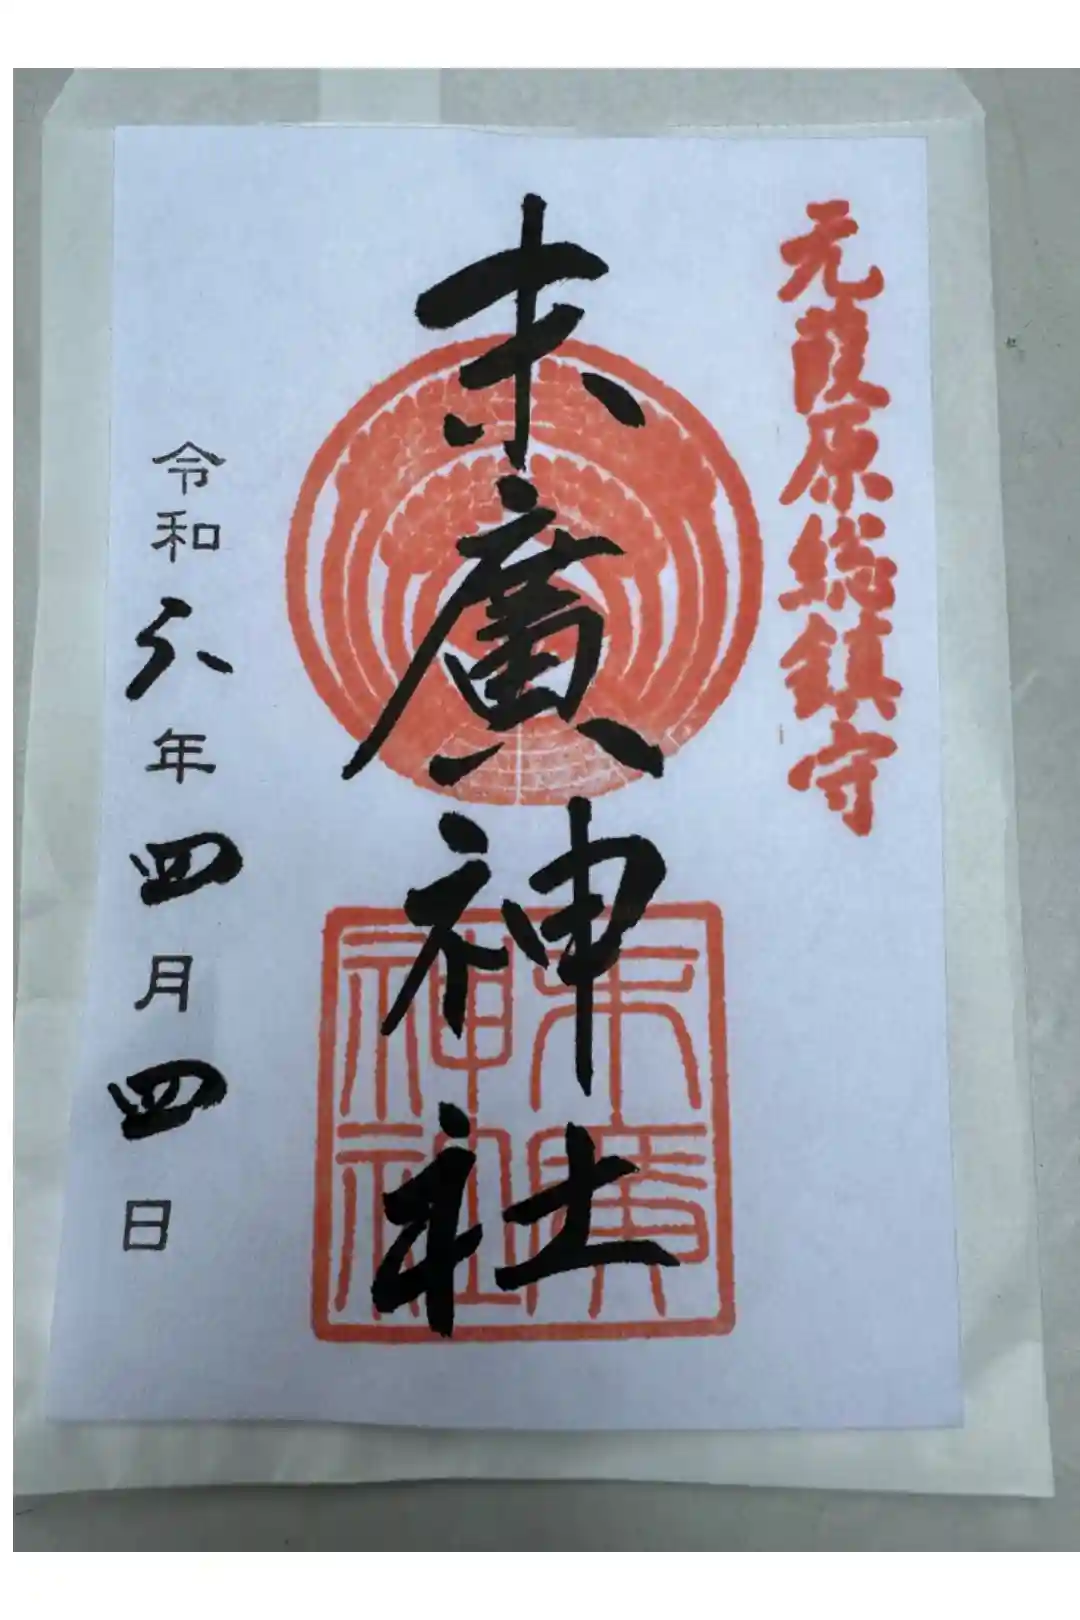 元葭原総鎮守
末廣神社
末廣
神社
令和六年四月四日